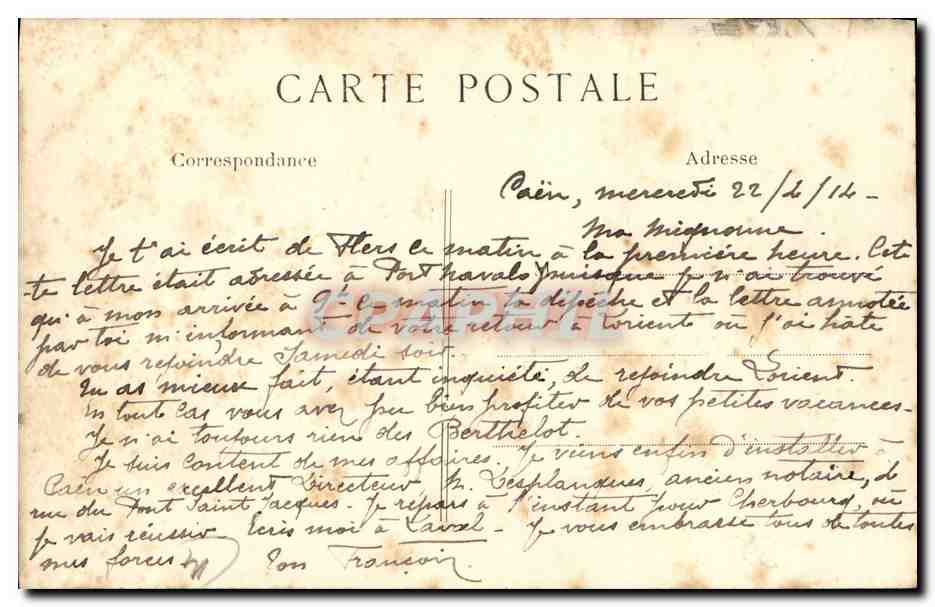 CARTE POSTALE
Correspondance
Adresse
Caën, mercredi 22/4/14 -
Ma Mignonne.
Je t'ai écrit de Flers ce matin à la première heure. Cet-
-te lettre était adressée à Port Navalo puisque je n'ai trouvé
qu'à mon arrivée à 9h ce matin ta dépêche et la lettre annotée
par toi m'informant de votre retour à Lorient où j'ai hâte
de vous rejoindre Samedi soir.
Tu as mieux fait, étant inquiète, de rejoindre Lorient.
En tout cas vous avez pu bien profiter de vos petites vacances -
Je n'ai toujours rien des Berthelot.
Je suis content de mes affaires. Je viens enfin d'installer à
Caën un excellent Directeur M. Desplanques, ancien notaire,
rue du Pont Saint Jacques - Je repars à l'instant pour Cherbourg, où
je vais réussir. Ecris moi à Laval - Je vous embrasse tous de toutes
mes forces
Ton François.
CPAPHIL